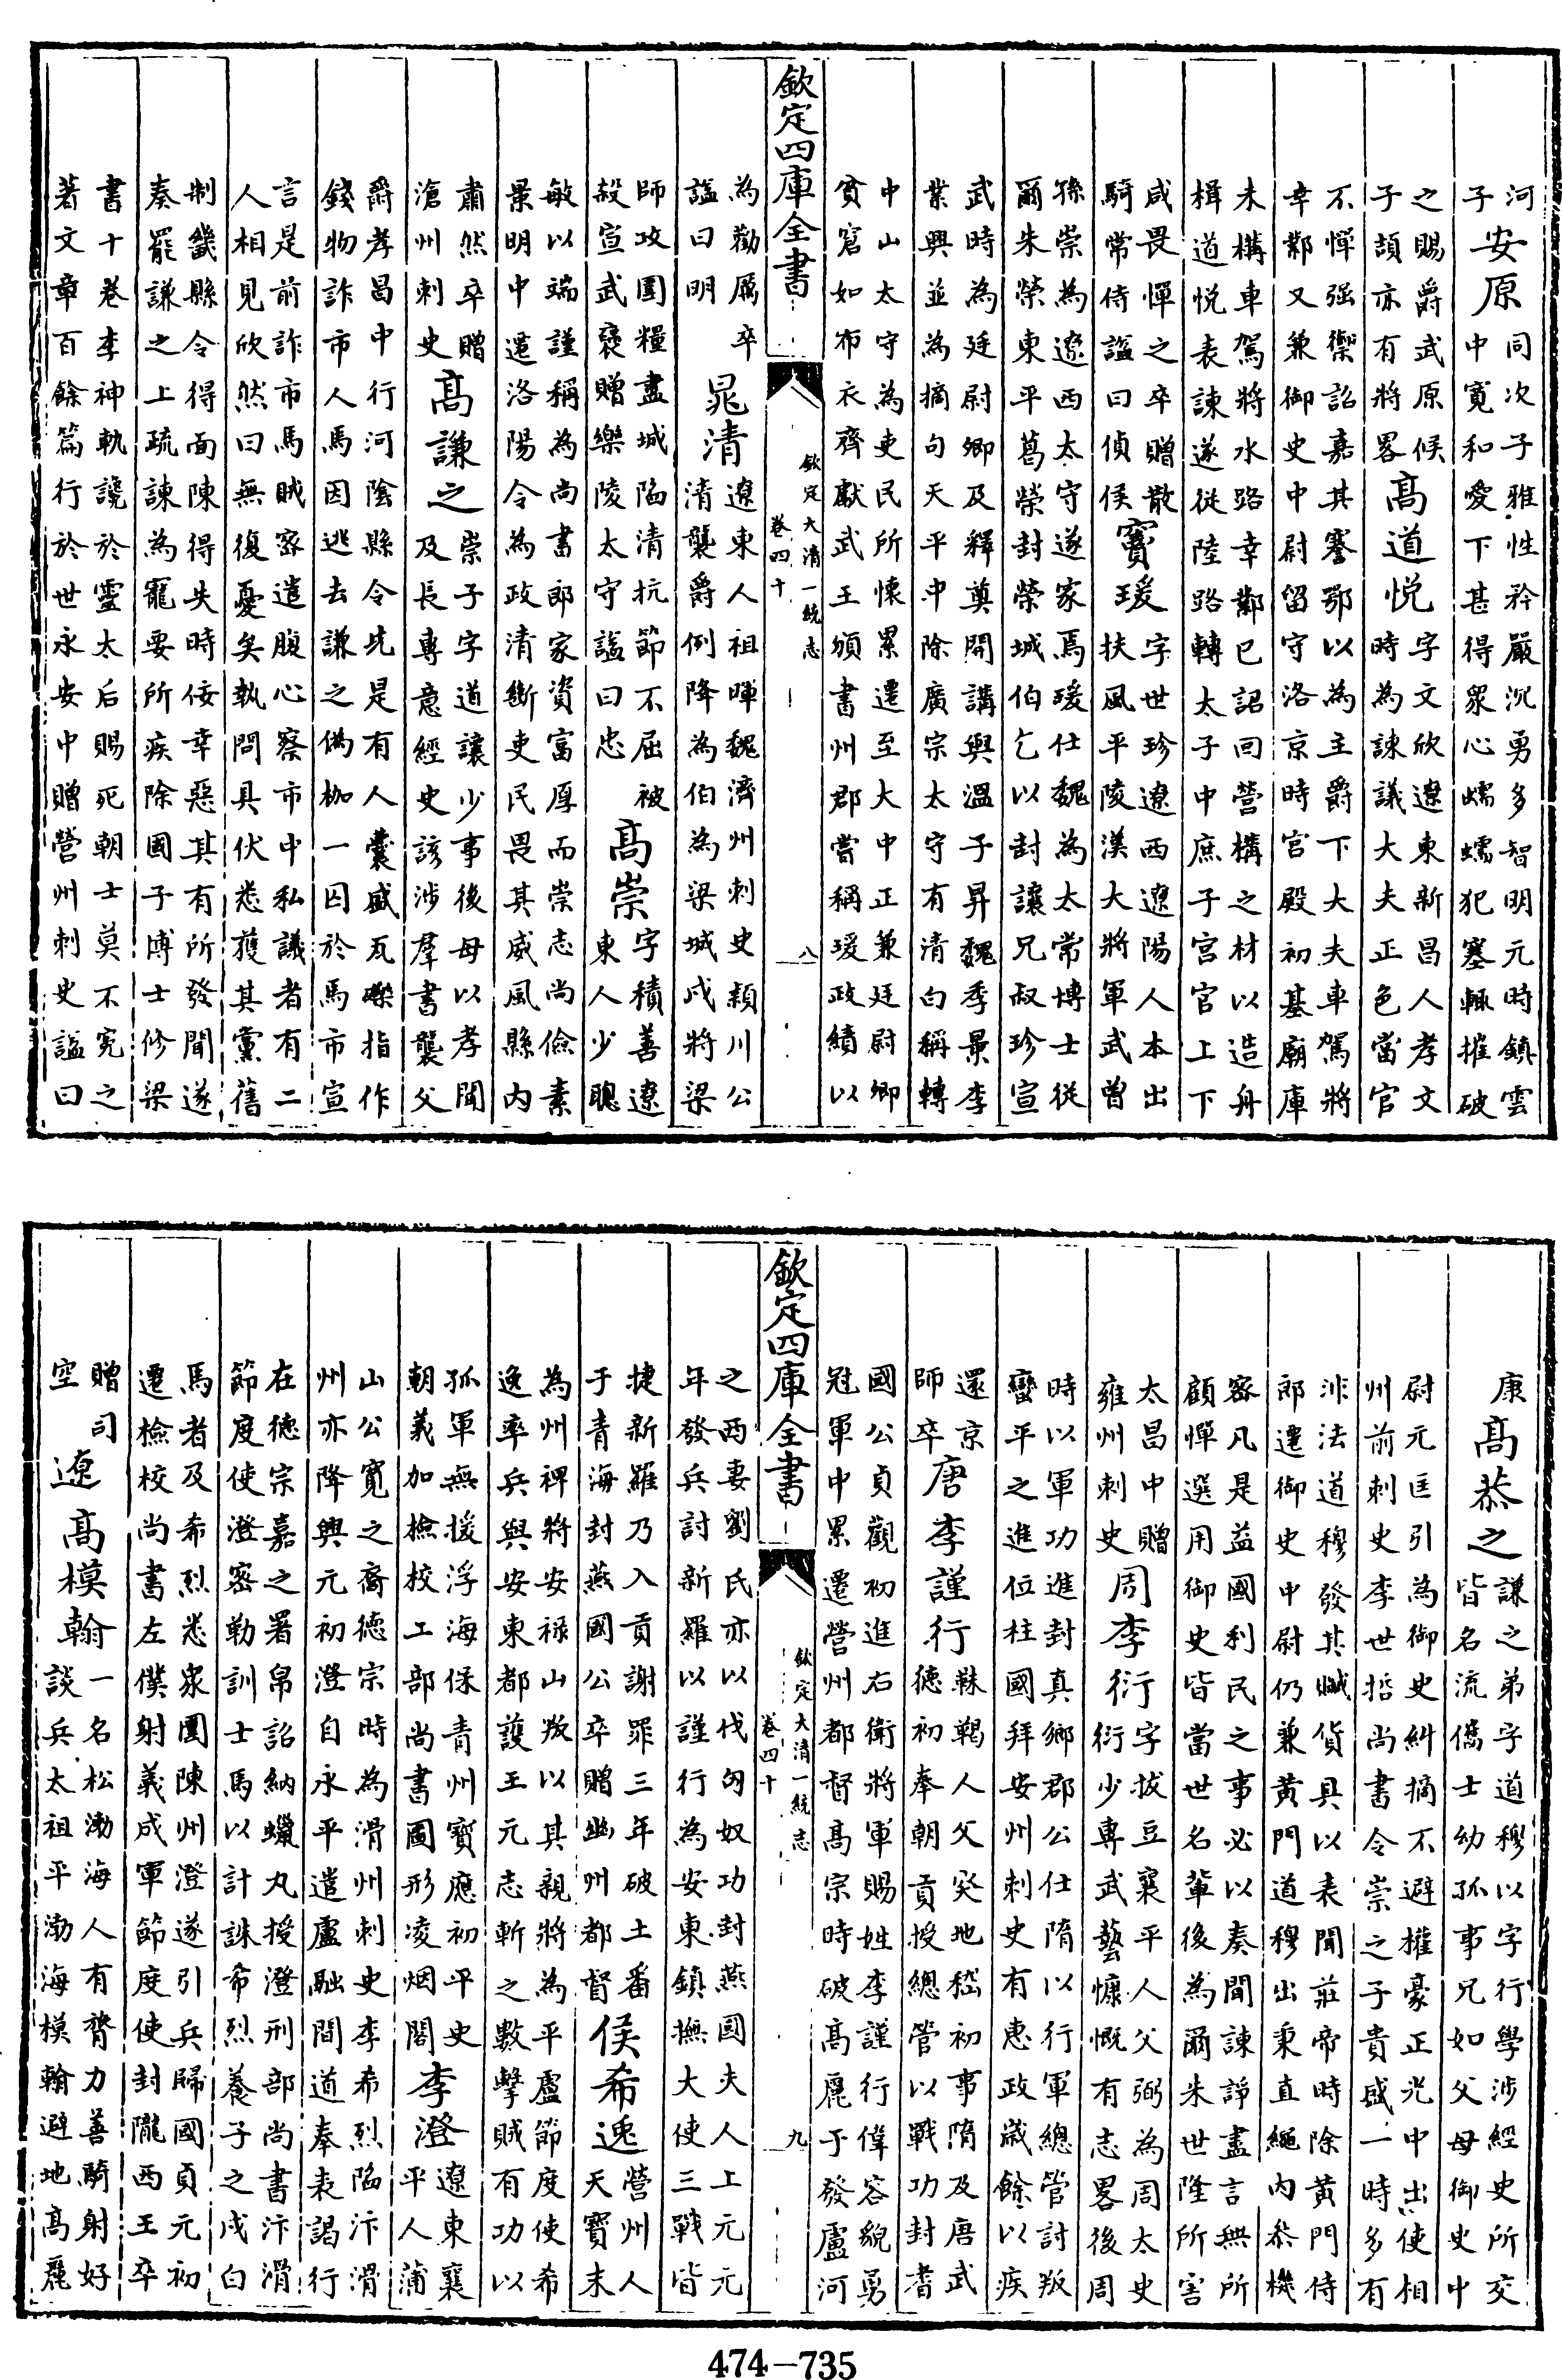 河子安原同次子雅性矜嚴沉勇多智明元時鎮雲中寛和愛下甚得衆心蠕蠕犯塞輒摧破
之賜爵武原候子頡亦有將畧高道悦字文欣遼東新昌人孝文時為諫議大夫正色當官
不憚强禦詔嘉其謇鄂以為主爵下大夫車駕將幸鄴又兼御史中尉留守洛京時宫殿初基廟庫
未構車駕將水路幸鄴已詔回營構之材以造舟楫道悦表諫遂從陸路轉太子中庶子宫官上下
咸畏憚之卒贈散騎常侍諡曰偵侯竇瑗字世珍遼西遼陽人本出扶風平陵漢大將軍武曾
孫崇為遼西太守遂家焉瑗仕魏為太常博士從爾朱榮東平葛榮封榮城伯乞以封讓兄叔珍宣
武時為廷尉卿及釋奠開講與溫子昇魏季景李業興並為摘句天平中除廣宗太守有清白稱轉
中山太守為吏民所懷累遷至大中正兼廷尉卿貧窘如布衣齊獻武王頒書州郡嘗稱瑗政績以
欽定四庫全書
欽定大清一統志
卷四十
八
為勸厲卒諡曰明晁清遼東人祖暉魏濟州刺史穎川公清襲爵例降為伯為梁城戍將梁
師攻圍糧盡城陷清抗節不屈被殺宣武褒贈樂陵太守諡曰忠高崇字積善遼東人少聰
敏以端謹稱為尚書郎家資富厚而崇志尚儉素景明中遷洛陽令為政清斷吏民畏其威風縣内
肅然卒贈滄州刺史高謙之崇子字道讓少事後母以孝聞及長專意經史該涉羣書襲父
爵孝昌中行河陰縣令先是有人囊盛瓦礫指作錢物詐市人馬因逃去謙之偽枷一囚於馬市宣
言是前詐市馬賊密遣腹心察市中私議者有二人相見欣然曰無復憂矣執問具伏悉獲其黨舊
制畿縣令得面陳得失時佞幸惡其有所發聞遂奏罷謙之上疏諫為寵要所疾除國子博士修梁
書十卷李神軌讒於靈太后賜死朝士莫不寃之著文章百餘篇行於世永安中贈營州刺史諡曰
康高恭之謙之弟字道穆以字行學涉經史所交皆名流儁士幼孤事兄如父母御史中
尉元匡引為御史糾摘不避權豪正光中出使相州前刺史李世哲尚書令崇之子貴盛一時多有
非法道穆發其贓貨具以表聞莊帝時除黄門侍郎遷御史中尉仍兼黄門道穆出秉直繩内叅機
密凡是益國利民之事必以奏聞諫諍盡言無所顧憚選用御史皆當世名輩後為爾朱世隆所害
太昌中贈雍州刺史周李衍字拔豆襄平人父弼為周太史衍少專武藝慷慨有志畧後周
時以軍功進封真鄉郡公仕隋以行軍總管討叛蠻平之進位柱國拜安州刺史有惠政歲餘以疾
還京師卒唐李謹行靺鞨人父突地稽初事隋及唐武德初奉朝貢授總管以戰功封耆
國公貞觀初進右衛將軍賜姓李謹行偉容貌勇冠軍中累遷營州都督高宗時破高麗于發盧河
欽定四庫全書
欽定大清一統志
卷四十
九
之西妻劉氏亦以伐匈奴功封燕國夫人上元元年發兵討新羅以謹行為安東鎮撫大使三戰皆
捷新羅乃入貢謝罪三年破土番于青海封燕國公卒贈幽州都督侯希逸營州人天寶末
為州裨將安禄山叛以其親將為平盧節度使希逸率兵與安東都護王元志斬之數擊賊有功以
孤軍無援浮海保青州寶應初平史朝義加檢校工部尚書圖形凌烟閣李澄遼東襄平人蒲
山公寛之裔德宗時為滑州刺史李希烈陷汴滑州亦降興元初澄自永平遣盧融間道奉表謁行
在德宗嘉之署帛詔納蠟丸授澄刑部尚書汴滑節度使澄密勒訓士馬以計誅希烈養子之戍白
馬者及希烈悉衆圍陳州澄遂引兵歸國貞元初遷檢校尚書左僕射義成軍節度使封隴西王卒
贈司空遼高模翰一名松渤海人有膂力善騎射好談兵太祖平渤海模翰避地高麗
474—735